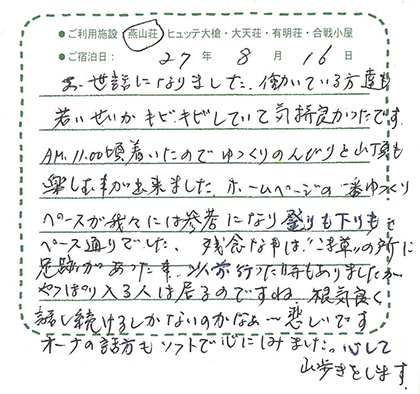 ●ご利用施設:燕山荘・ヒュッテ大槍・大天荘・有明荘・合戦小屋
●ご宿泊日: 27 年 8 月 16 日
お世話になりました、働いている方達も
若いせいかキビキビしていて気持良かったです
AM.11.00頃着いたのでゆっくりのんびりと山頂も
楽しむ事が出来ました ホームページの一番ゆっくり
ペースが我々には参考になり登りも下りも
ペース通りでした、残念な事は"こま草"の所に
足跡があった事、以前行った時もありましたが
やっぱり入る人は居るのですね、根気良く
話し続けるしかないのかなぁ〜悲しいです
オーナの話方もソフトで心にしみました。心して
山歩きをします.